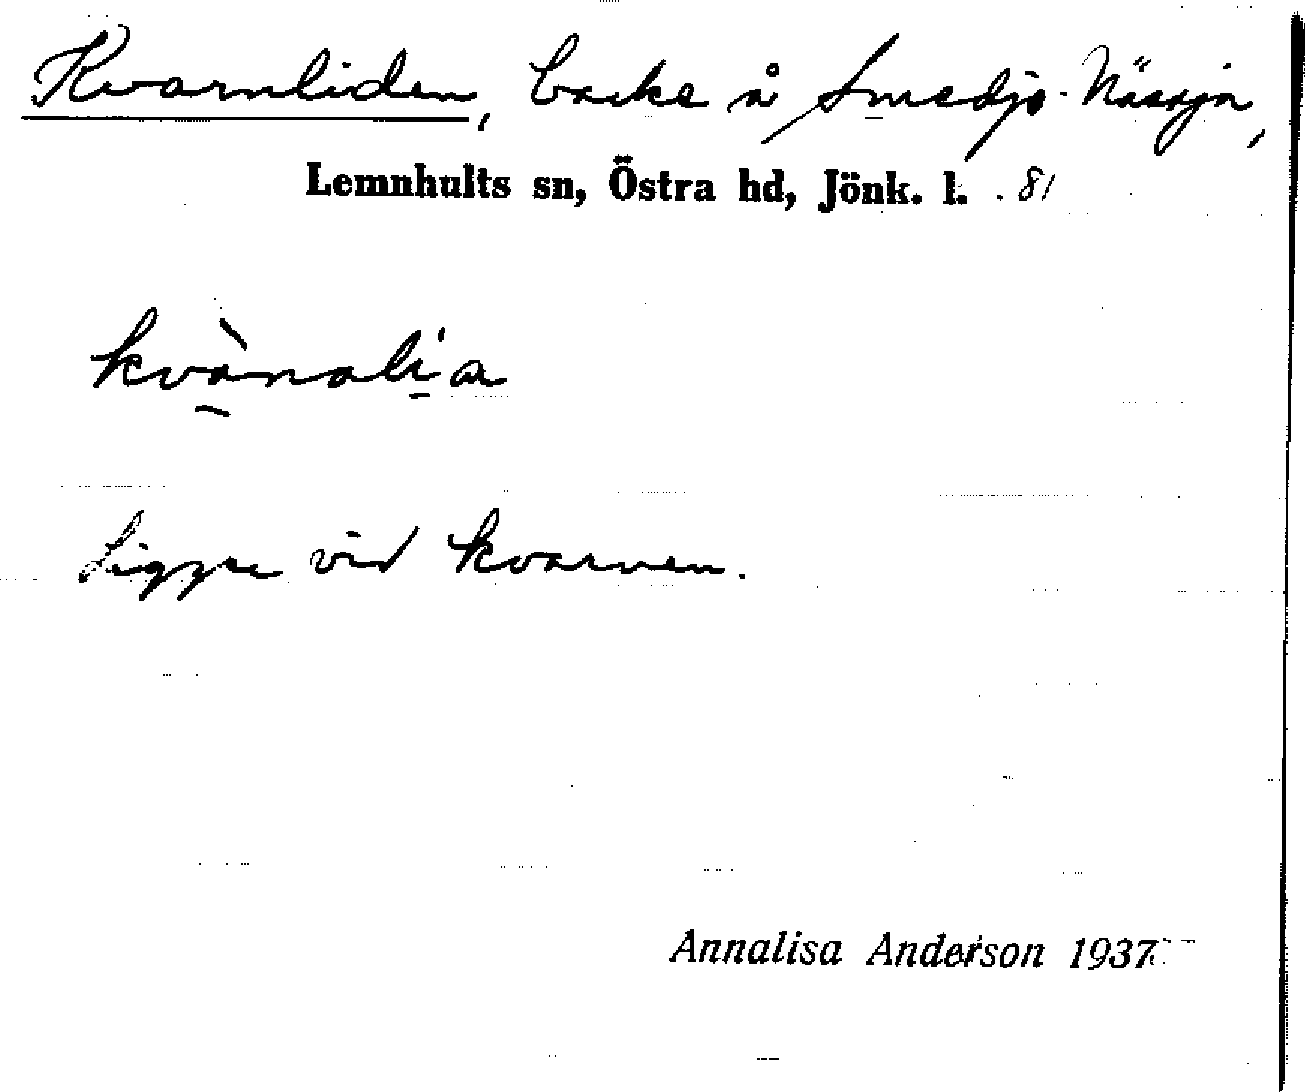 Kvarnliden, backe å Smedjo-Näsaja,
Lemnhults sn, Östra hd, Jönk. l. 81
kvànalia
Ligger vid kvarnen.
Annalisa Anderson 1937